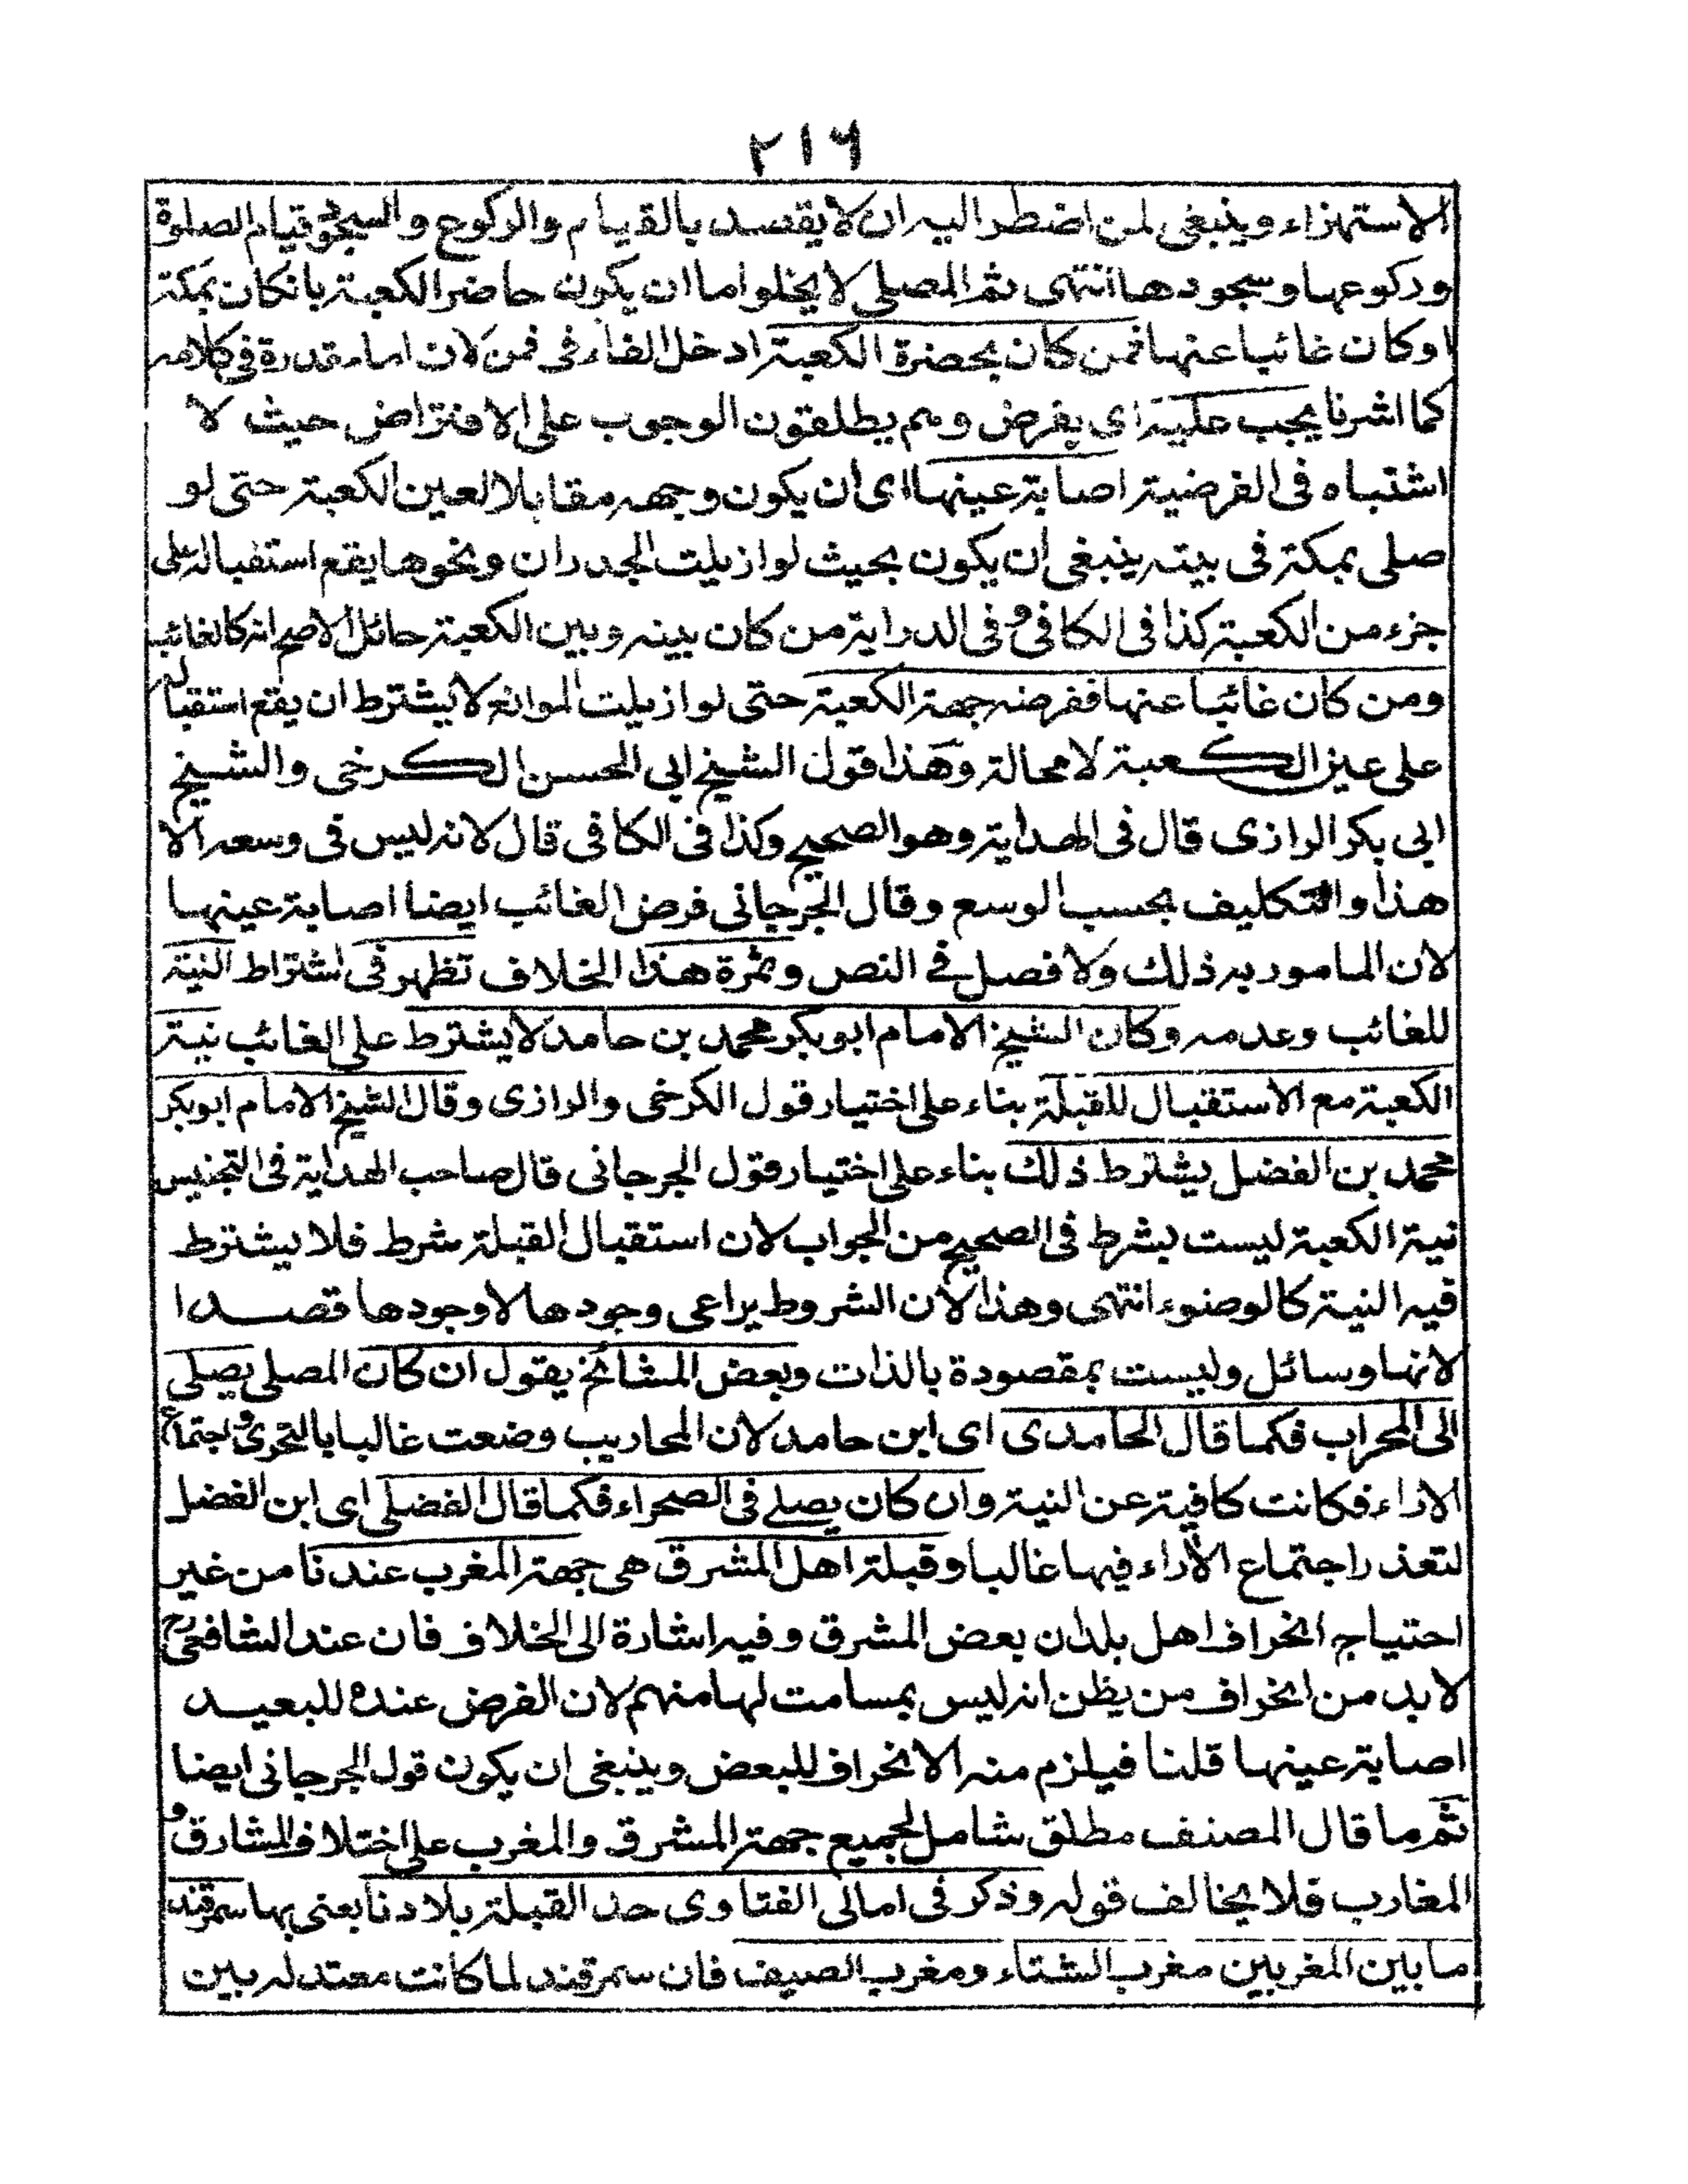 ٢١٦
الاستهزاء وينبغى لمن اضطر اليه ان لا يقصد بالقيام والركوع والسجود قيام الصلوة
وركوعها وسجودها انتهى ثم المصلى لا يخلوا ما ان يكون حاضر الكعبة بانكان بمكة
اوكان غائبا عنها فمن كان بحضرة الكعبة ادخل الفاء فى فمن لان اما مقدرة فى كلامه
كما اشرنا يجب عليه اى يفرض وهم يطلقون الوجوب على الافتراض حيث لا
اشتباه فى الفرضية اصابة عينها اى ان يكون وجهه مقابلا لعين الكعبة حتى لو
صلى بمكة فى بيته ينبغى ان يكون بحيث لو ازيلت الجدران ونحوها يقع استقباله على
جزء من الكعبة كذا فى الكافى وفى الدراية من كان بينه وبين الكعبة حائل الاصح انه كالغائب
ومن كان غائبا عنها ففرضه جهة الكعبة حتى لو ازيلت الموانع لا يشترط ان يقع استقباله
على عين الكعبة لا محالة وهذا قول الشيخ ابى الحسن الكرخى والشيخ
ابى بكر الرازى قال فى الهداية وهو الصحيح وكذا فى الكافى قال لانه ليس فى وسعه الا
هذا والتكليف بحسب الوسع وقال الجرجانى فرض الغائب ايضا اصابة عينها
لان المامور به ذلك ولا فصل فى النص وثمرة هذا الخلاف تظهر فى اشتراط النية
للغائب وعدمه وكان الشيخ الامام ابو بكر محمد بن حامد لا يشترط على الغائب نية
الكعبة مع الاستقبال للقبلة بناء على اختيار قول الكرخى والرازى وقال الشيخ الامام ابو بكر
محمد بن الفضل يشترط ذلك بناء على اختيار قول الجرجانى قال صاحب الهداية فى التجنيس
نية الكعبة ليست بشرط فى الصحيح من الجواب لان استقبال القبلة شرط فلا يشترط
فيه النية كالوضوء انتهى وهذا لان الشروط يراعى وجودها لا وجودها قصدا
لانها وسائل وليست بمقصودة بالذات وبعض المشائخ يقول ان كان المصلى يصلى
الى المحراب فكما قال الحامدى اى ابن حامد لان المحاريب وضعت غالبا بالتحرى واجتماع
الاراء فكانت كافية عن النية وان كان يصلى فى الصحراء فكما قال الفضلى اى ابن الفضل
لتعذر اجتماع الأراء فيها غالبا وقبلة اهل المشرق هى جهة المغرب عندنا من غير
احتياج انحراف اهل بلدان بعض المشرق وفيه اشارة الى الخلاف فان عند الشافعىؒ
لا بد من انحراف من يظن انه ليس بمسامت لها منهم لان الفرض عنده للبعيد
اصابة عينها قلنا فيلزم منه الانحراف للبعض وينبغى ان يكون قول الجرجانى ايضا
ثم ما قال المصنف مطلق شامل لجميع جهة المشرق والمغرب على اختلاف المشارق و
المغارب فلا يخالف قوله وذكر فى امالى الفتاوى حد القبلة بلادنا يعنى بها سمرقند
ما بين المغربين مغرب الشتاء ومغرب الصيف فان سمرقند لما كانت معتدله بين